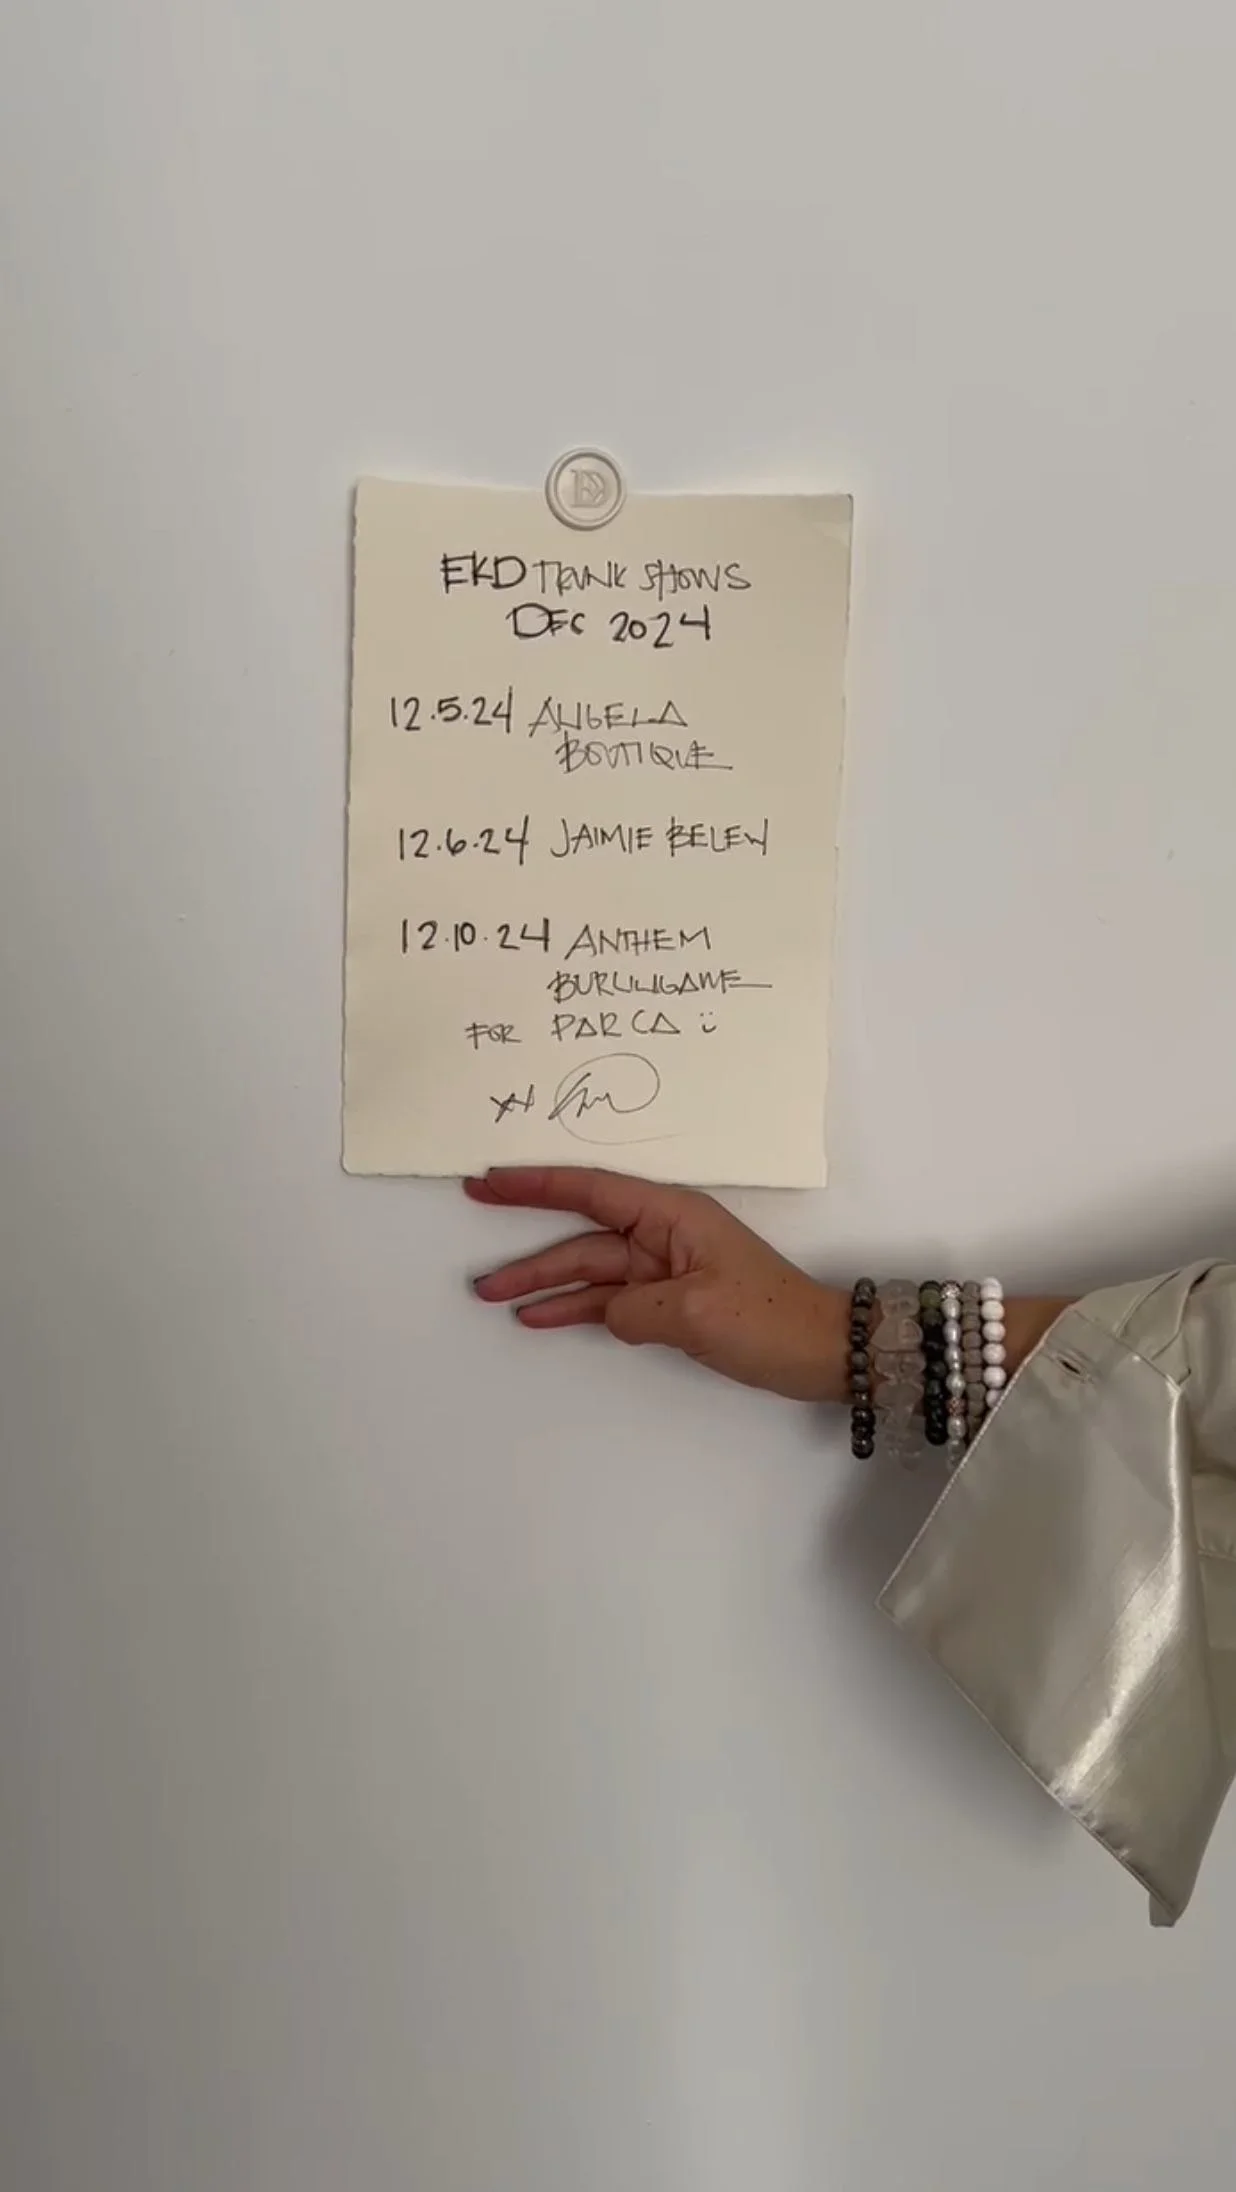 EKD TRUNK SHOWS
DEC 2024
12.5.24 ANGELA
BOUTIQUE
12.6.24 JAIMIE BELEW
12.10.24 ANTHEM
BURLINGAME
FOR PARCA :)